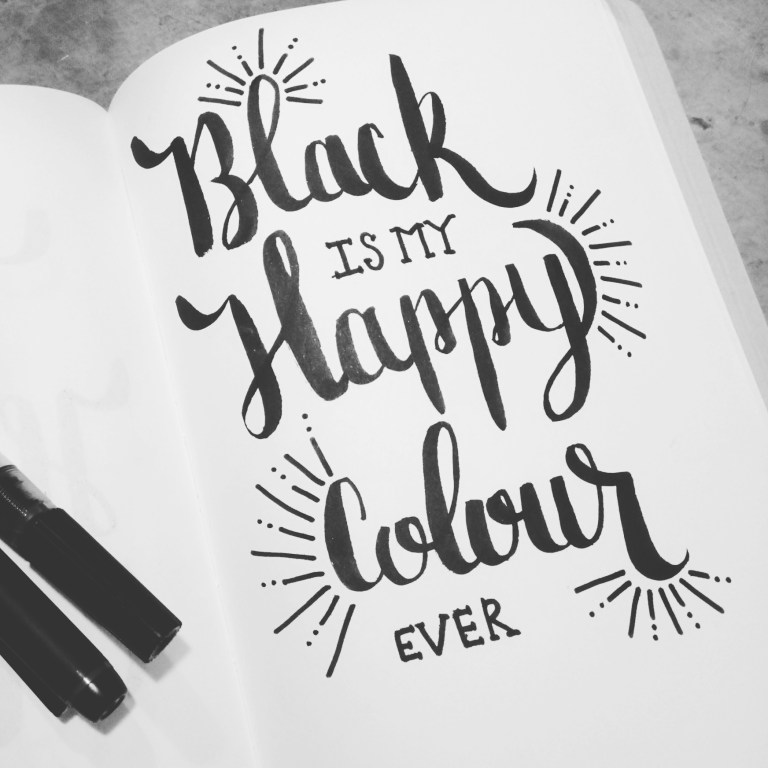 Black
IS MY
Happy
Colour
EVER